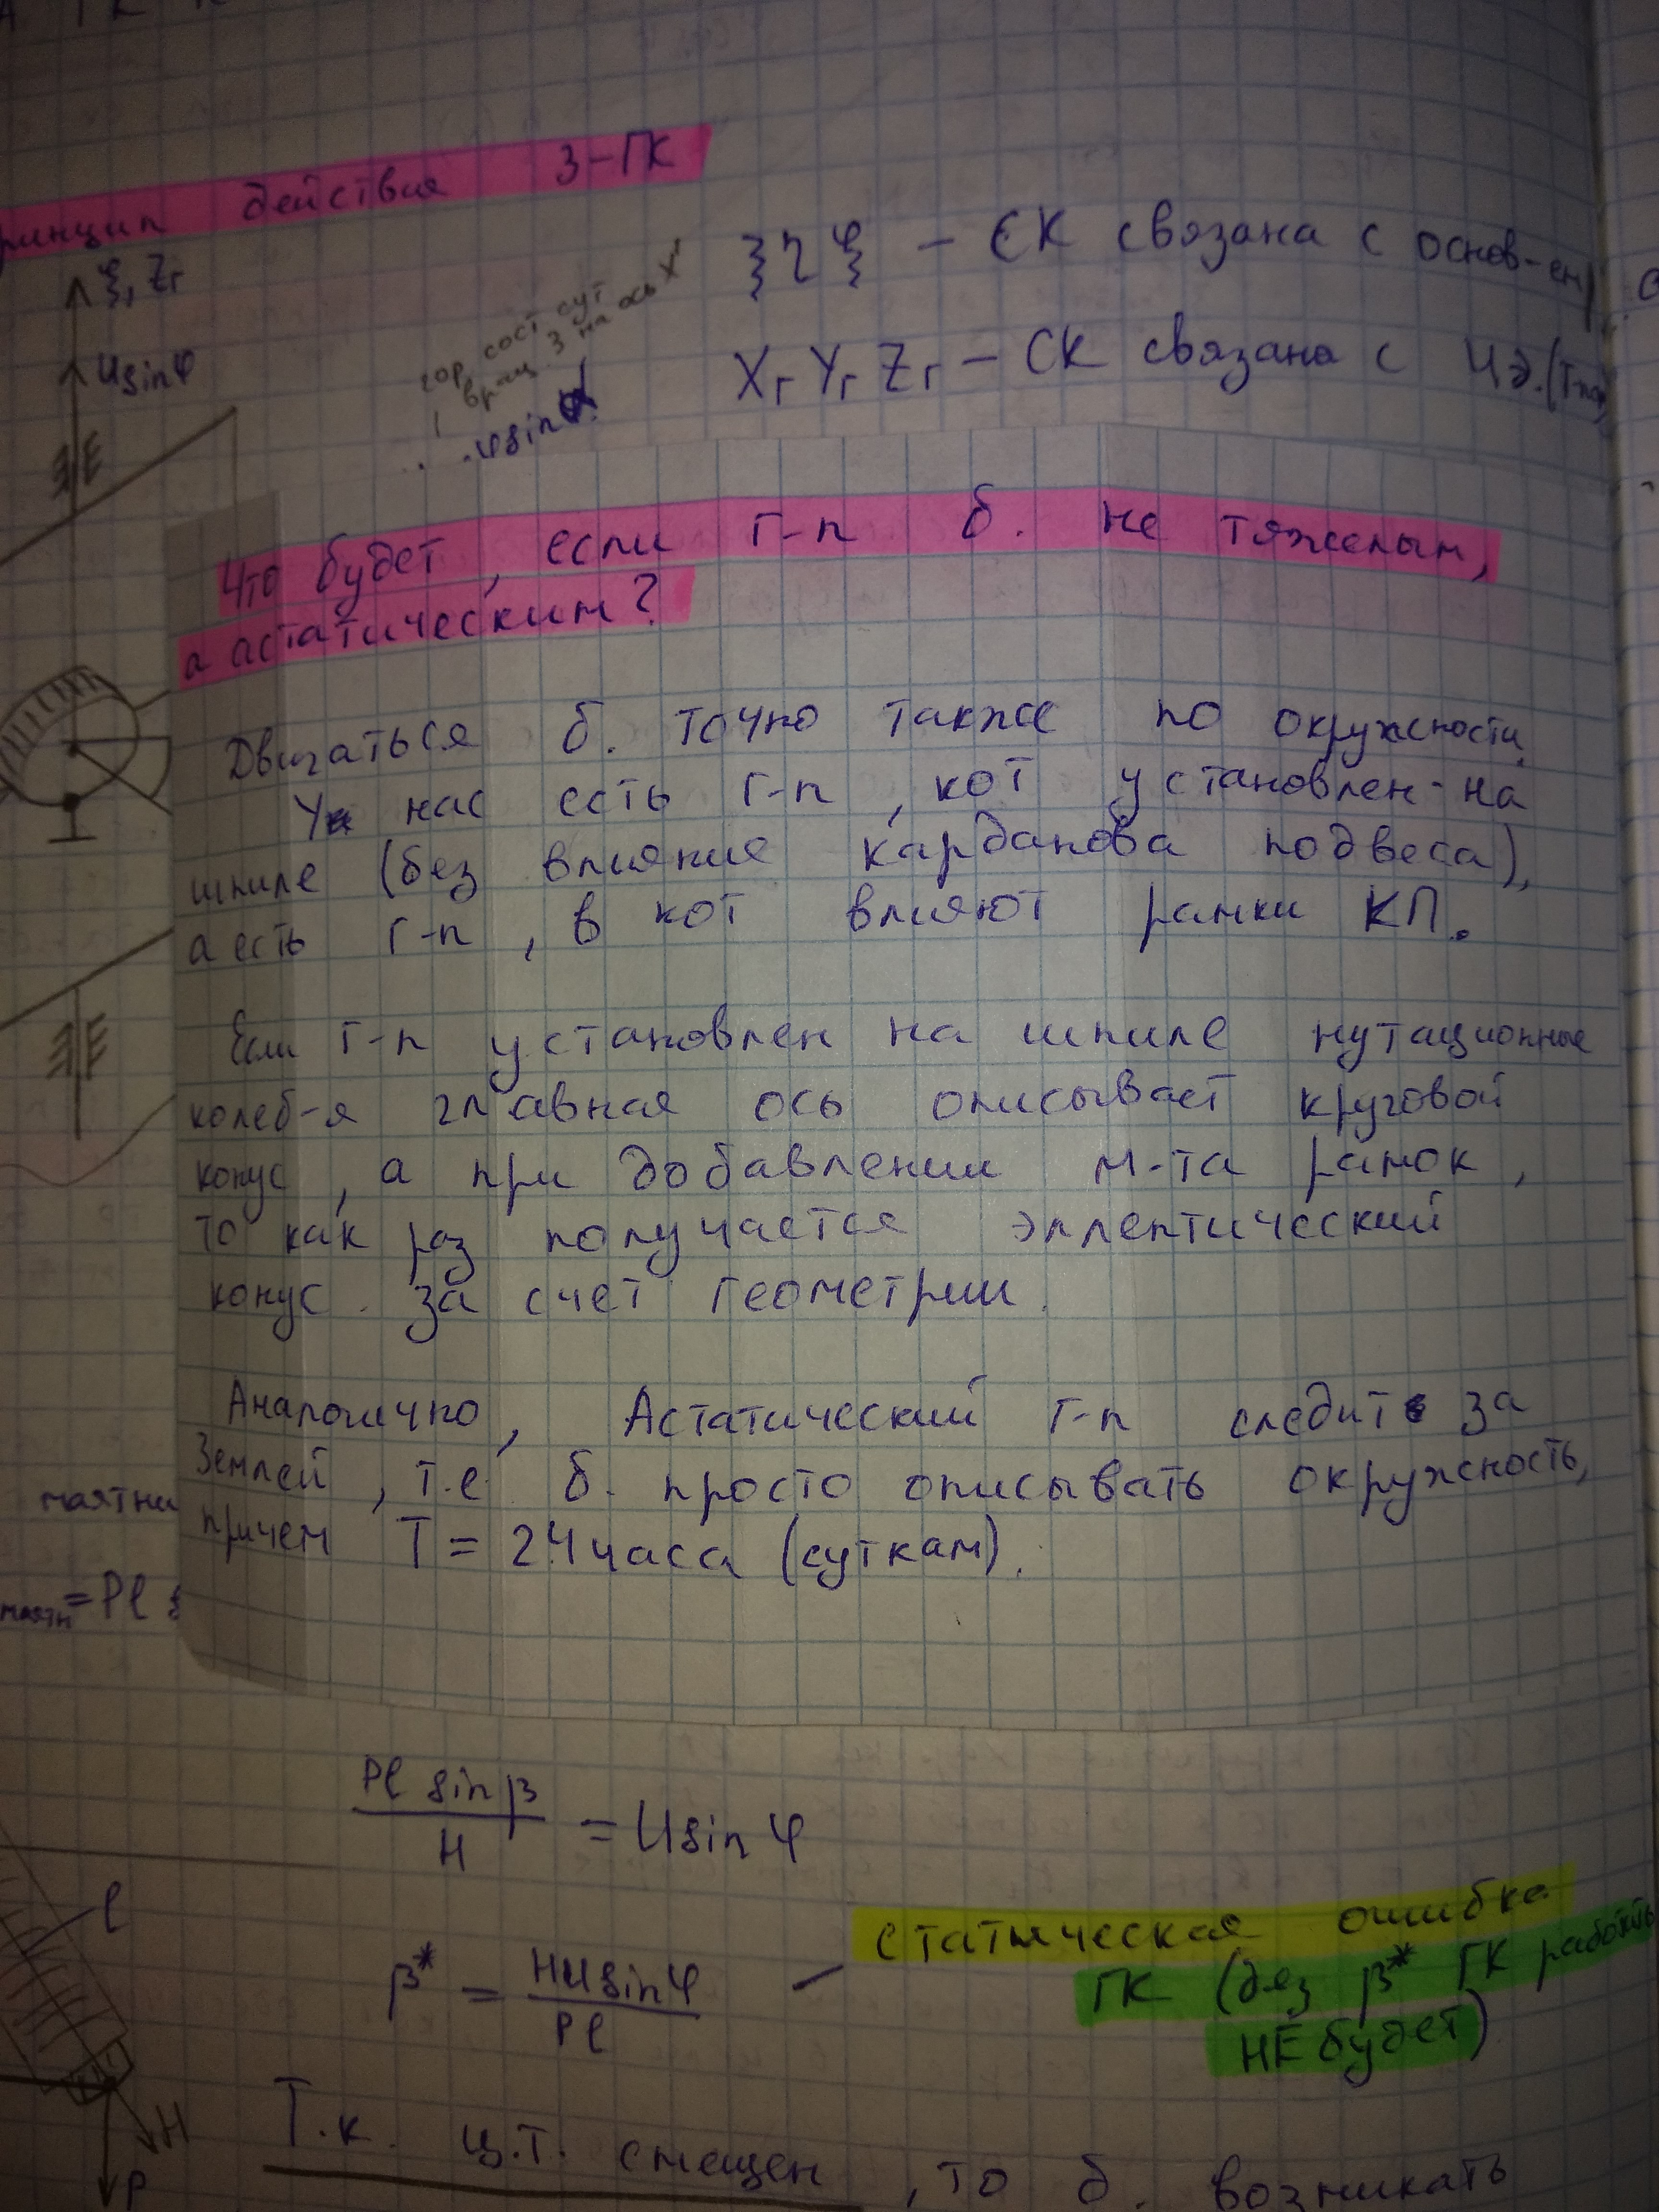 ринцип действия 3-ГК
ξ, Zг
Usinφ
гор сост сут
вращ. З на ось X
φsinα
ξηζ – СК связана с основ-ем
XгYгZг – СК связана с ЧЭ.
Что будет, если г-п б. не тяжелым,
а астатическим?
Двигаться б. точно также по окружности
У нас есть г-п, кот установлен на
шпиле (без влияние карданова подвеса),
а есть г-п, в кот влияют рамки КП.
Если г-п установлен на шпиле нутационные
колеб-я главная ось описывает круговой
конус, а при добавлении м-та рамок,
то как раз получается эллептический
конус. за счет геометрии.
Аналогично, Астатический г-п следит за
Землей, т.е. б. просто описывать окружность,
причем T = 24 часа (суткам).
маятни
маятн = Pl
Pl sin β / H = U sin φ
l
β* = HU sin φ / Pl – статическая ошибка
ГК (без β* ГК работать
НЕ будет)
H
P
Т.к. ц.т. смещен, то б. возникать